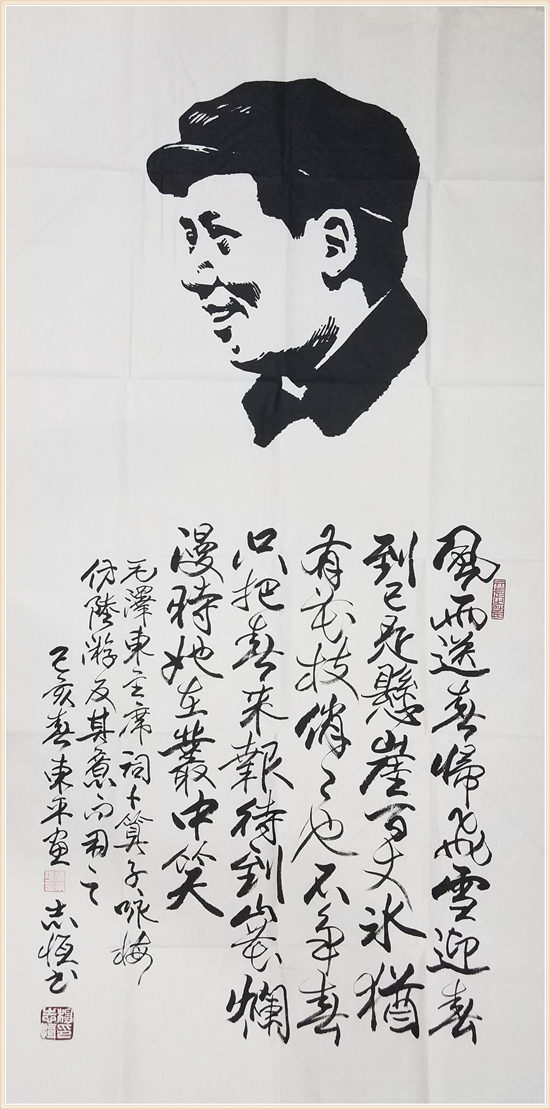 風雨送春歸飛雪迎春
到已是懸崖百丈冰猶
有花枝俏〻也不争春
只把春来報待到山花爛
漫時她在叢中笑
毛澤東主席词卜算子咏梅
仿陸游反其意而用之
己亥春東平画
志恒书